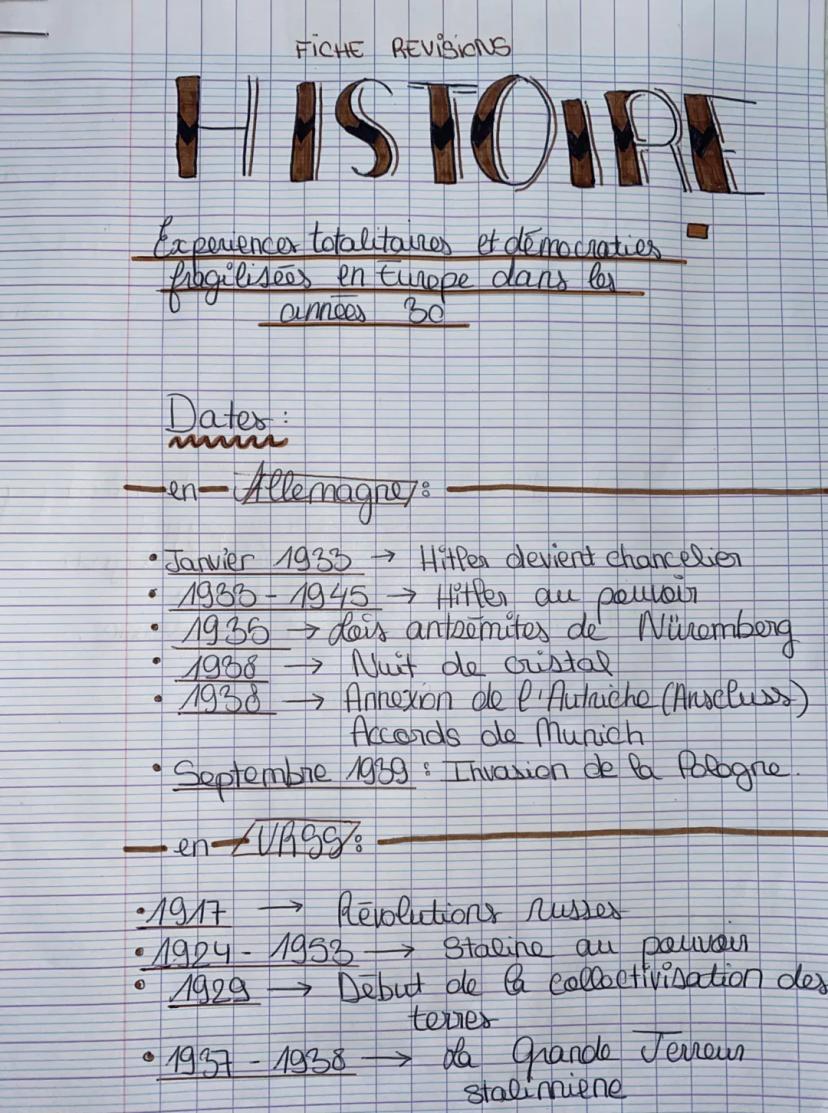 FICHE REVISIONS
HISTOIRE
Experiences totalitaires et démocraties
fragilisées en Europe dans les
années 30
Dates :
en Allemagne :
• Janvier 1933 → Hitler devient chancelier
• 1933 - 1945 → Hitler au pouvoir
• 1935 → Lois antisémites de Nüremberg
• 1938 → Nuit de cristal
• 1938 → Annexion de l'Autriche (Anscluss)
Accords de Munich
• Septembre 1939 : Invasion de la Pologne.
en URSS :
• 1917 → Révolutions russes
• 1924 - 1953 → Staline au pouvoir
• 1929 → Début de la collectivisation des
terres
• 1937 - 1938 → La Grande Terreur
stalinniene